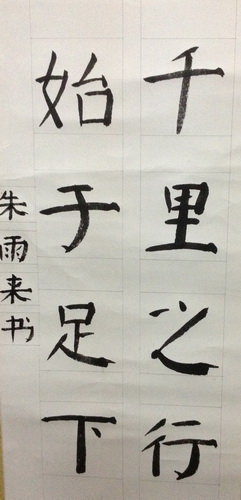 千里之行
始于足下
朱雨来书